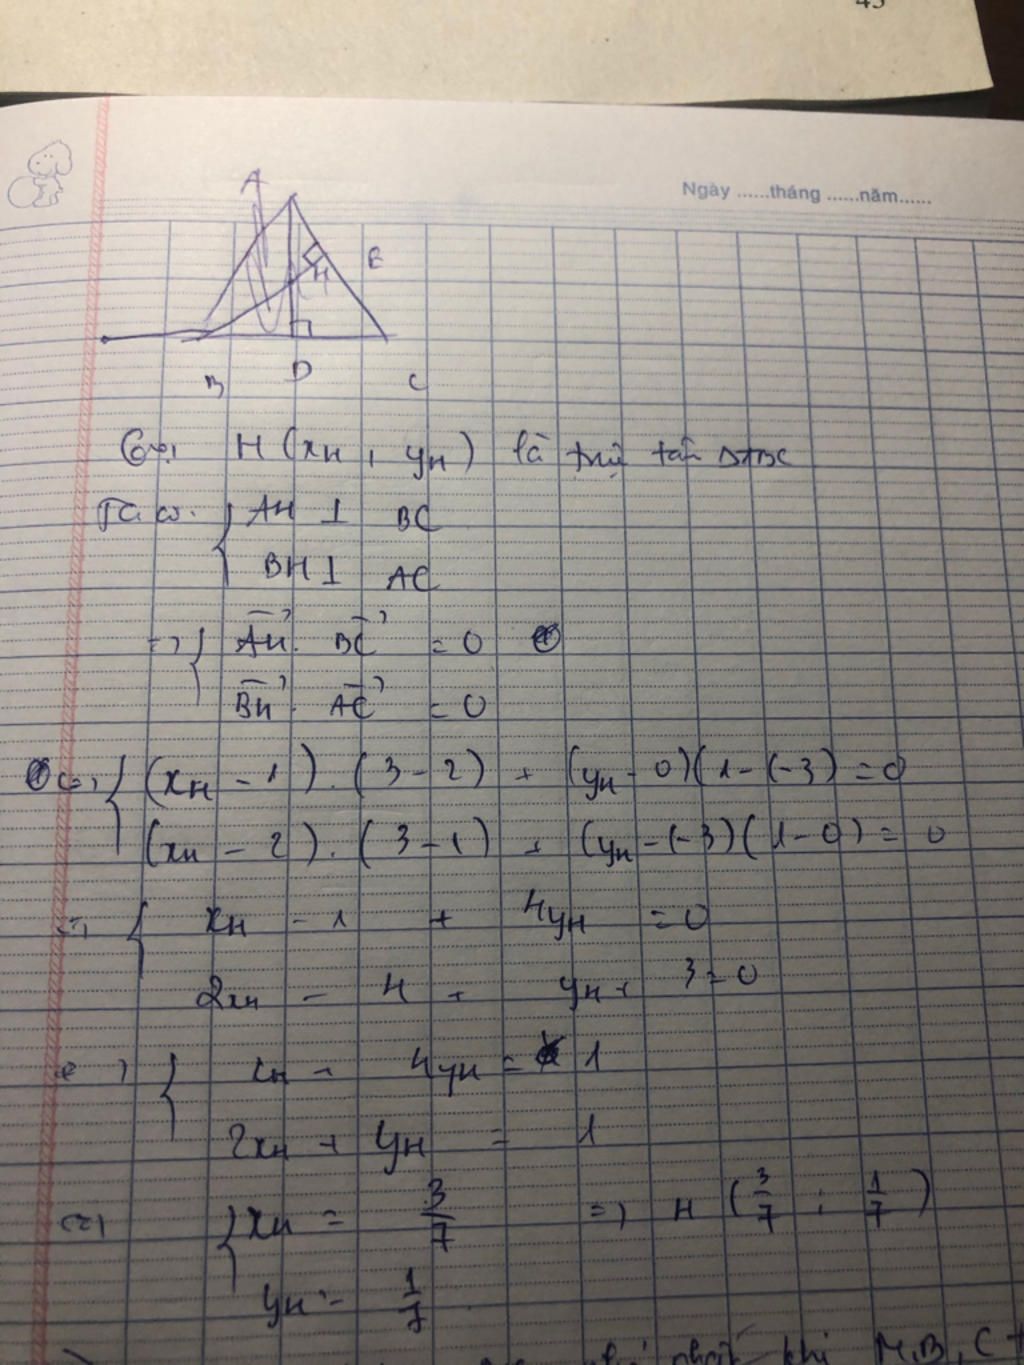 45
Ngày ......tháng ......năm......
A
E
H
B D C
Gọi H (xH , yH) là trực tâm ΔABC
Ta có: { AH ⊥ BC
BH ⊥ AC
=> { AH→ . BC→ = 0
BH→ . AC→ = 0
(=) { (xH - 1) . (3 - 2) + (yH - 0)(1 - (-3) = 0
(xH - 2) . (3 - 1) + (yH - (-3)(1 - 0) = 0
(=) { xH - 1 + 4yH = 0
2xH - 4 + yH + 3 = 0
(=) { xH + 4yH = 1
2xH + yH = 1
(=) { xH = 3/7 => H (3/7 ; 1/7)
yH = 1/7
nhỏ nhất khi M, B, C